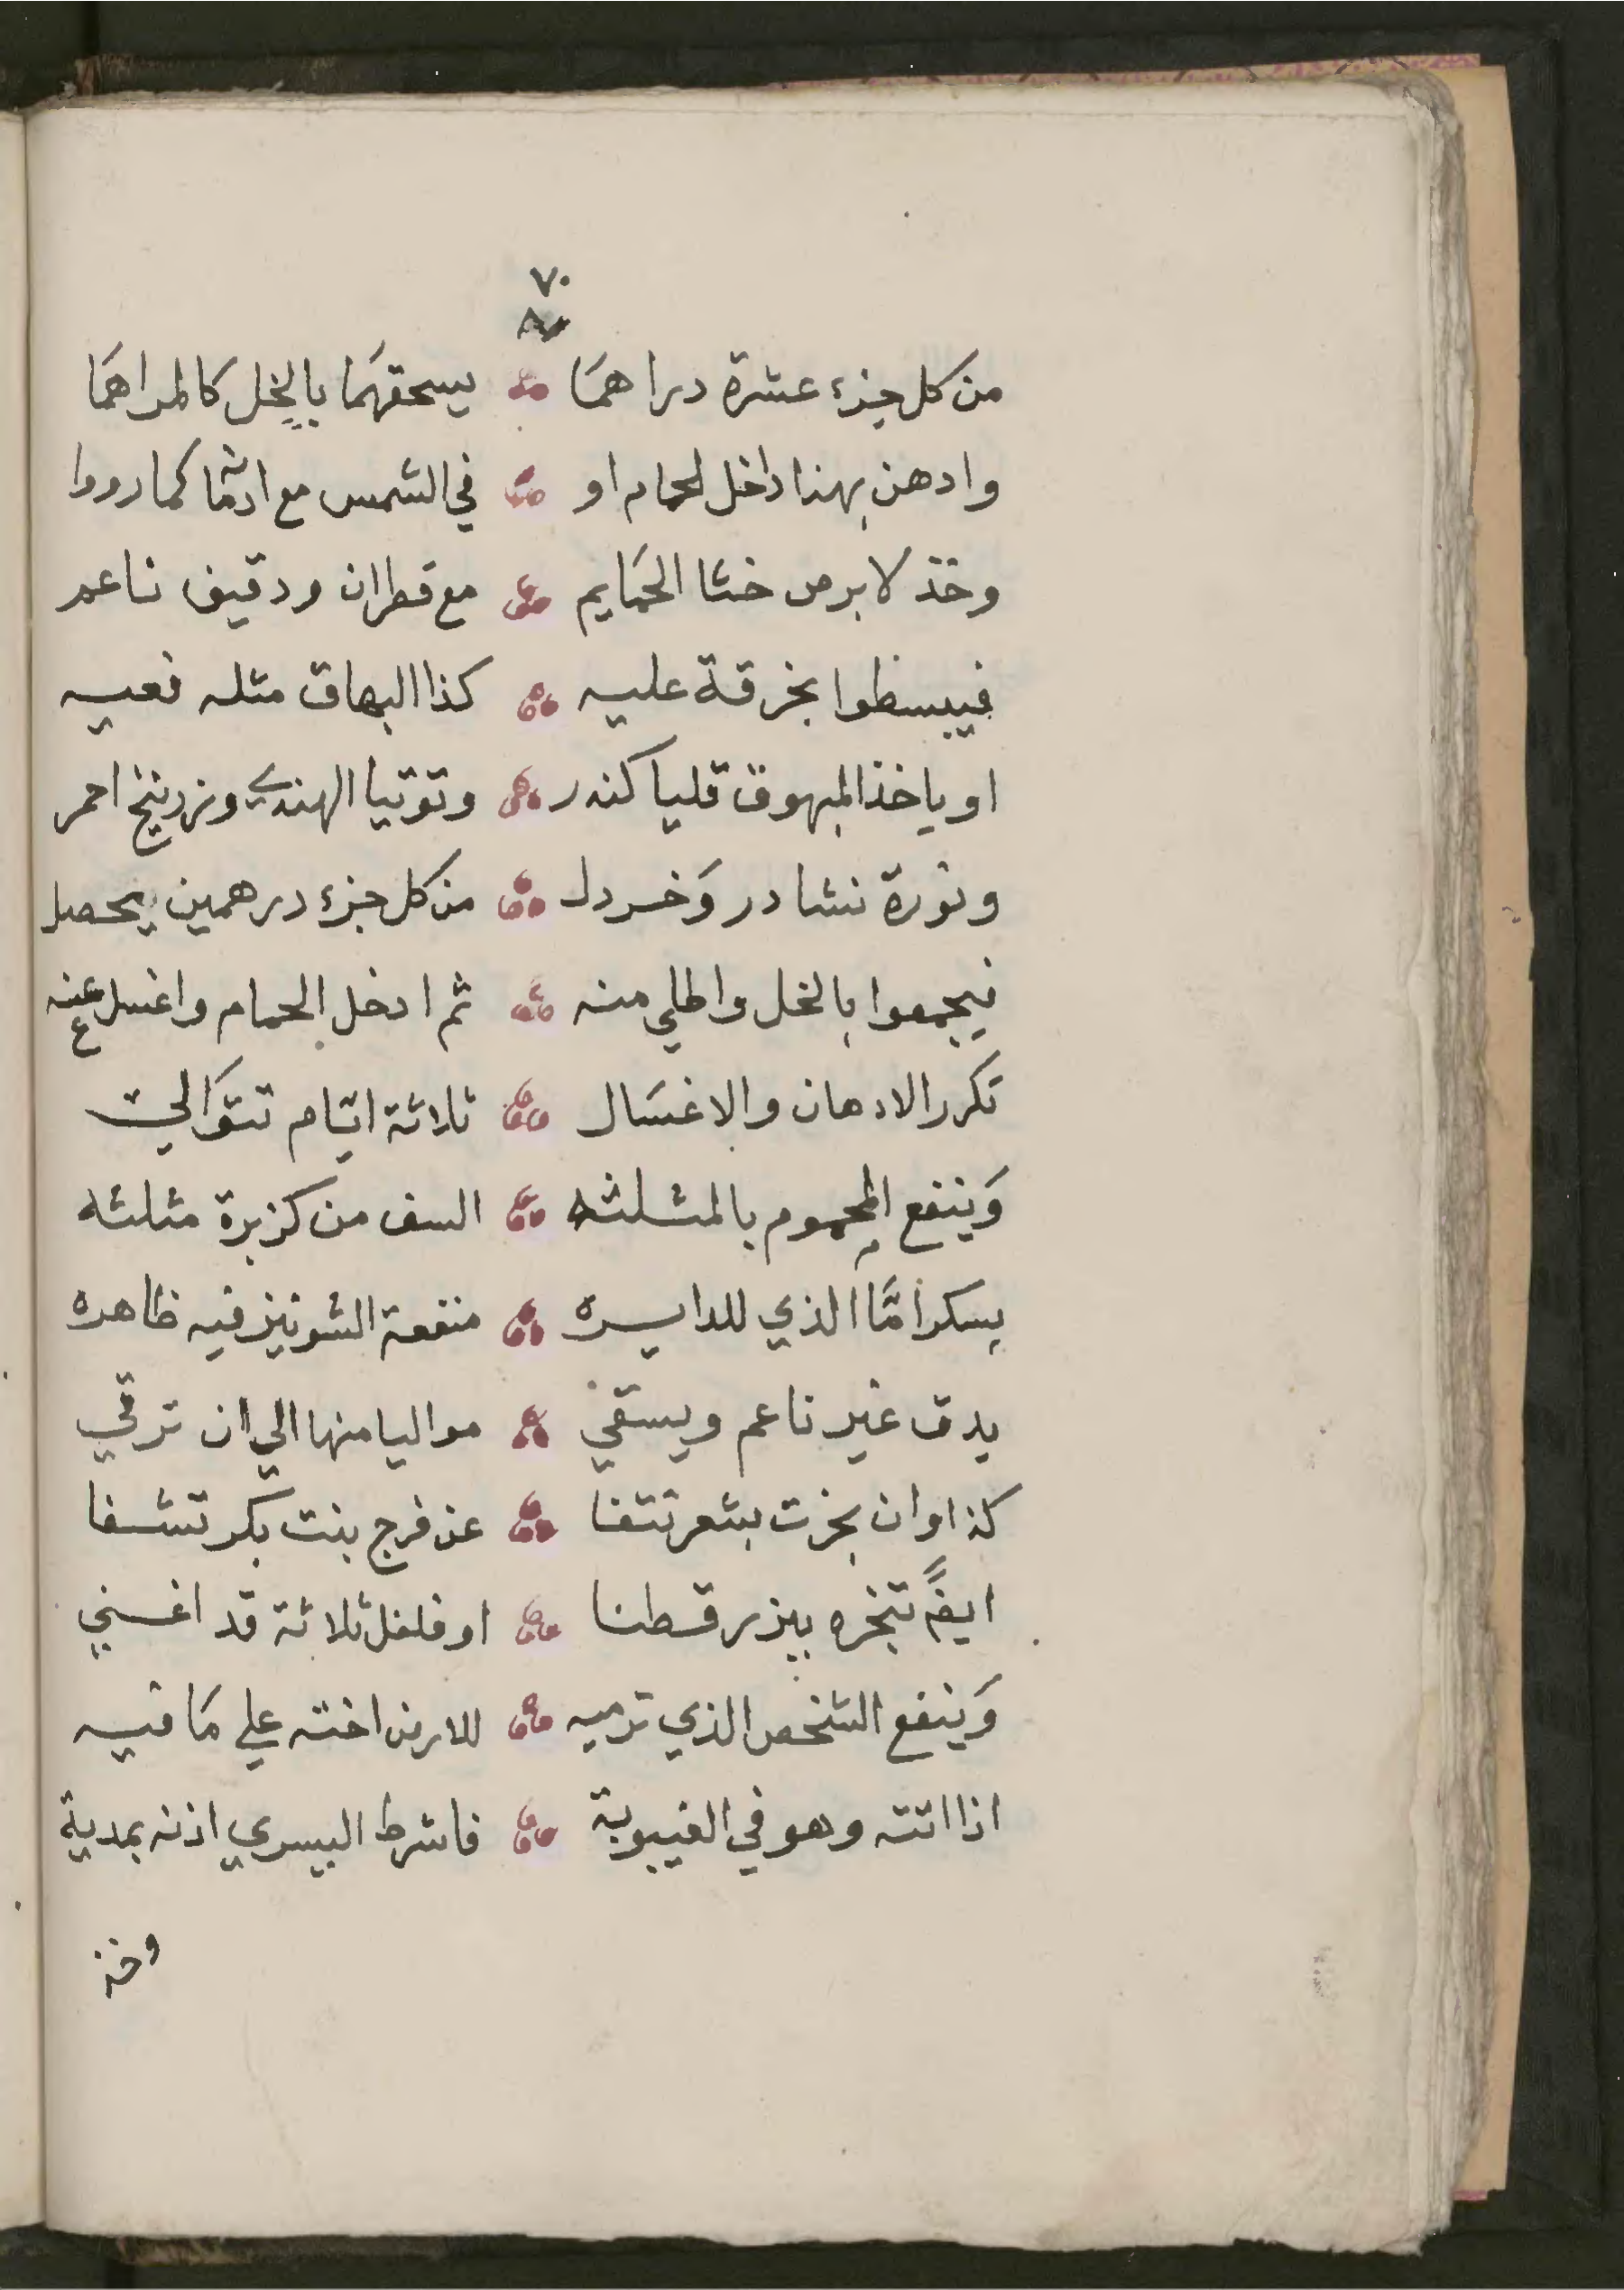 ٧٠
من كل جزء عشرة دراهمَا يسحقهَما بالخِل كالمراهمَا
وادهن بهذا داخل الحمام او في الشمس مع ادمَّا كما رووا
وخذ لابرص خثا الحمَايم مع قطران ودقيق ناعم
فيبسطوا بخرقة عليه كذا البهاق مثله فعيه
او ياخذ المبهوق قليا كندر وتوتيا الهندي وزرنيخ احمر
ونورة نشادر وَخردل من كل جزء درهمين يحصل
فيجمعوا بالخل واطلي منه ثم ادخل الحمام واغسل عنه
تَكرر الادهان والاغسَال ثلاثة ايام تتوَالي
وَينفع المحموم بالمثلثه السف من كزبرة مثلثه
بسكر امَّا الذي للدايره منفعة الشونيز فيه ظاهره
يدق غير ناعم ويستقي مواليا منها الي ان ترقي
كذا وان بخرت بشعر نتفا عن فرج بنت بكر تشفا
ايضًا تبخره ببزر قطنا او فلفل ثلاثة قد اغني
وَينفع الشخص الذي ترميه للارض اخته علي مَا فيه
اذا اتته وهو في الغيبوبة فاشرط اليسري اذنه بمدية
وخذ